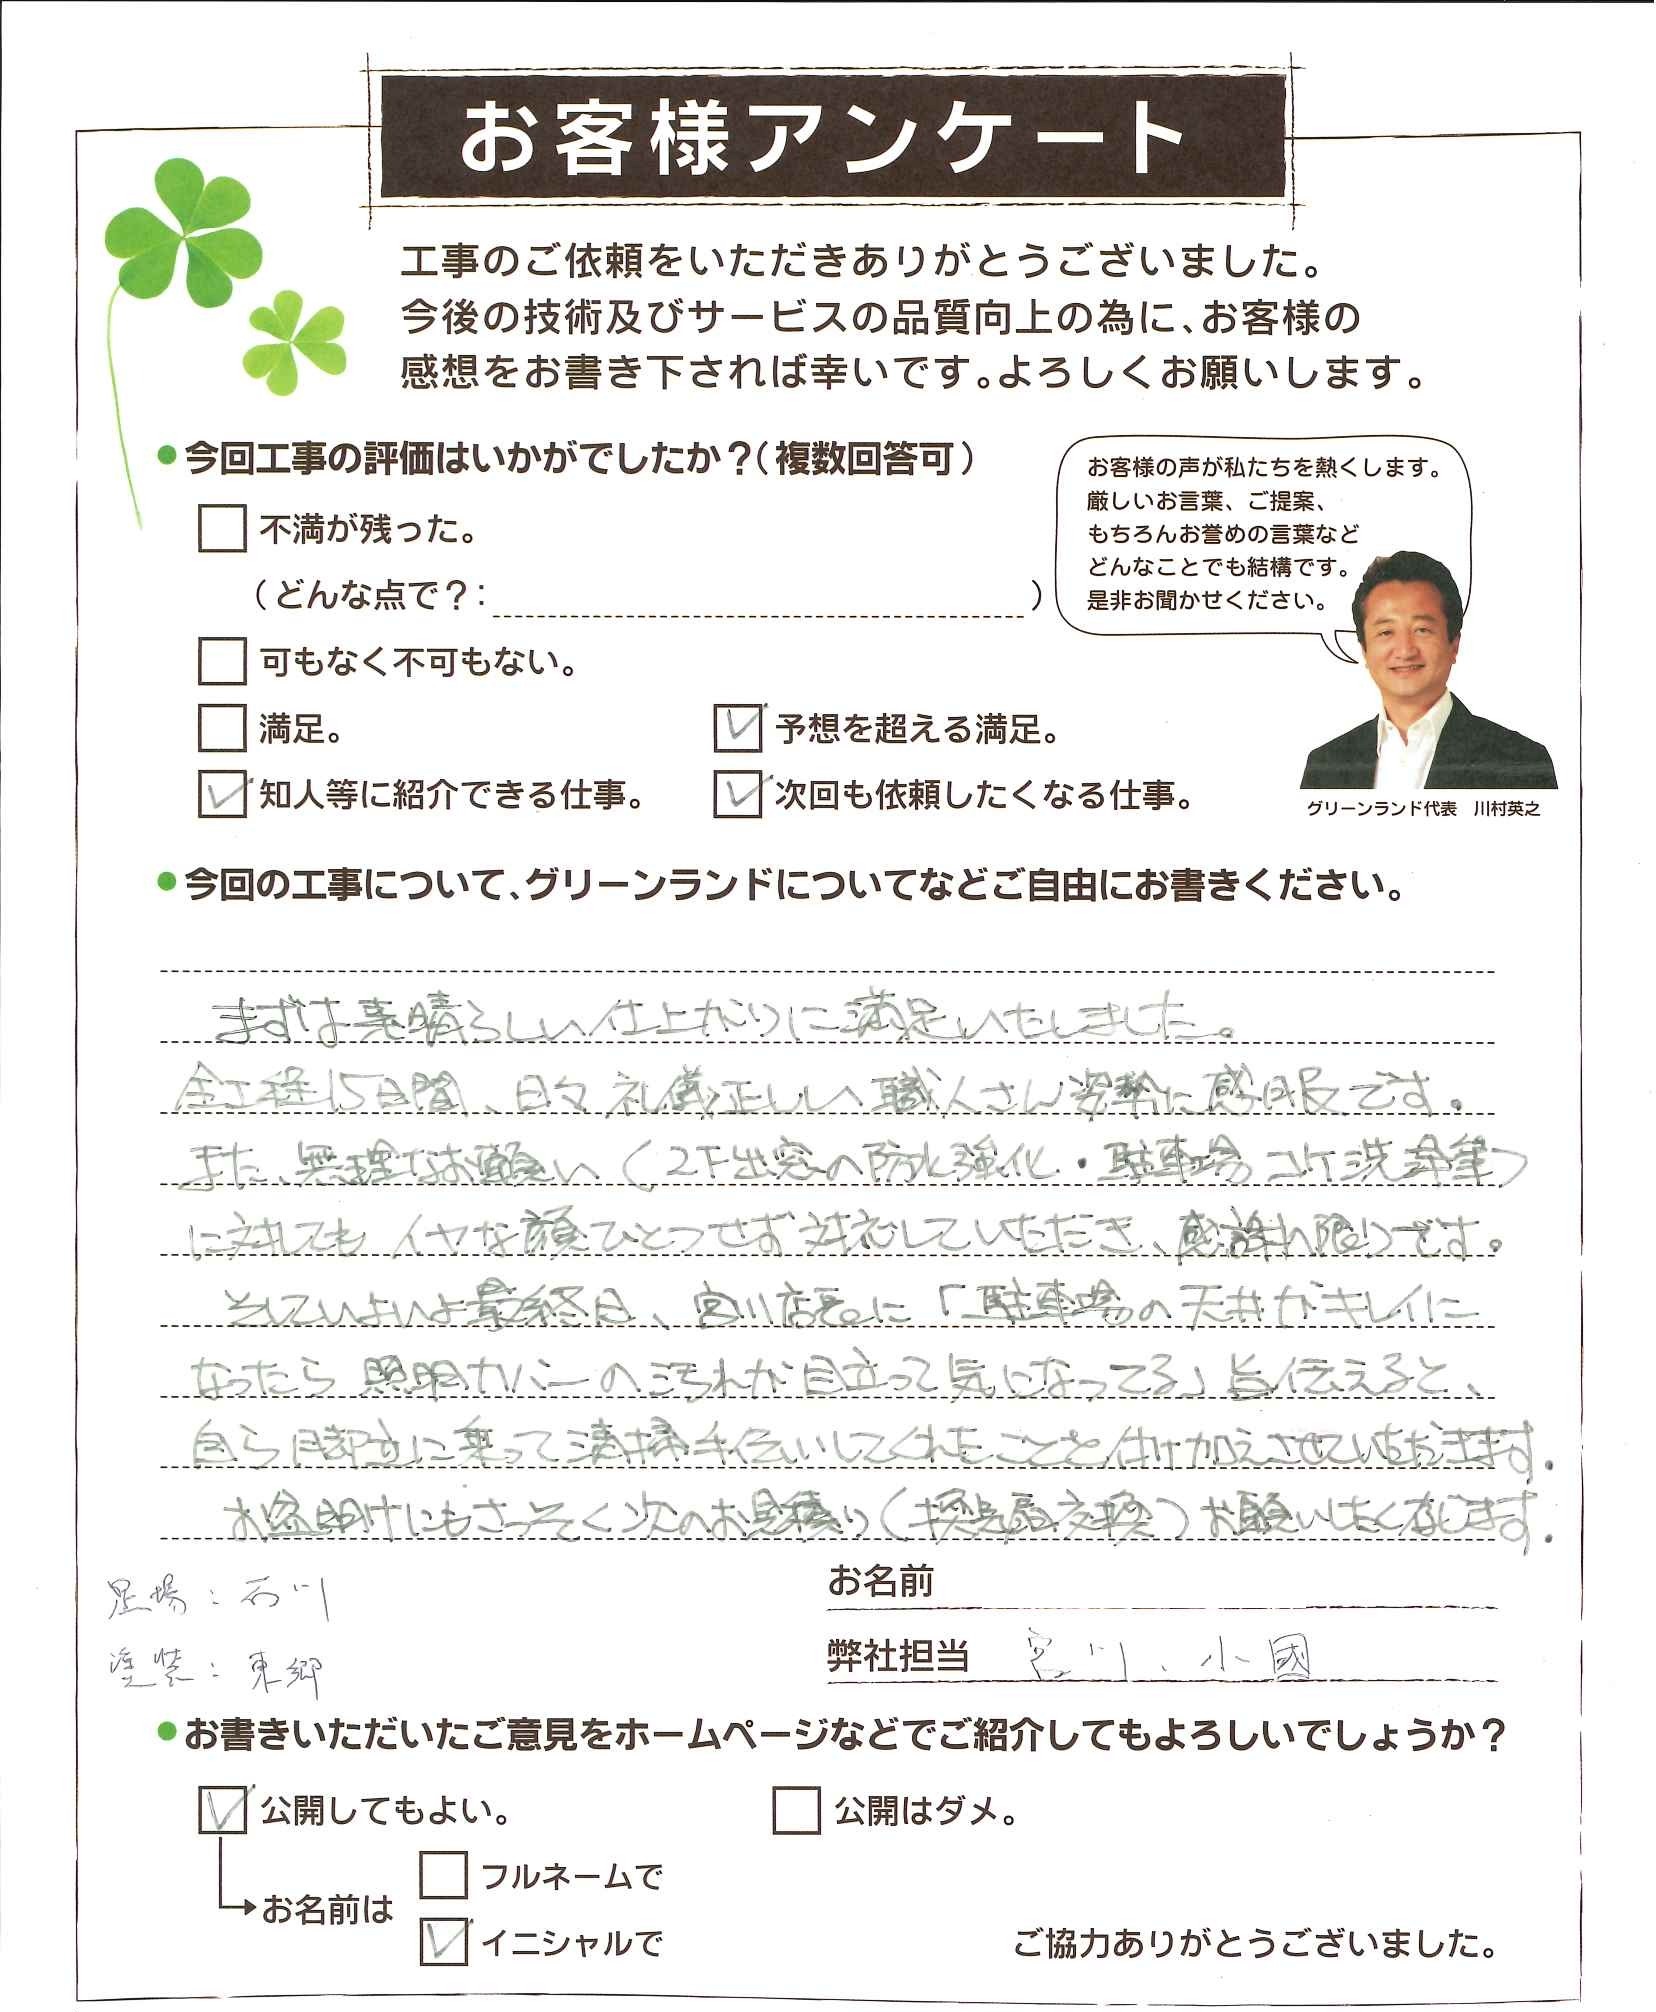 お客様アンケート
工事のご依頼をいただきありがとうございました。
今後の技術及びサービスの品質向上の為に、お客様の
感想をお書き下されば幸いです。よろしくお願いします。
●今回工事の評価はいかがでしたか？（複数回答可）
不満が残った。
（どんな点で？：　）
可もなく不可もない。
満足。
予想を超える満足。
知人等に紹介できる仕事。
次回も依頼したくなる仕事。
お客様の声が私たちを熱くします。
厳しいお言葉、ご提案、
もちろんお誉めの言葉など
どんなことでも結構です。
是非お聞かせください。
グリーンランド代表　川村英之
●今回の工事について、グリーンランドについてなどご自由にお書きください。
まずは素晴らしい仕上がりに満足いたしました。
全工程15日間、日々礼儀正しい職人さん姿勢に感服です。
また、無理なお願い（2F出窓の防水強化・駐車場コケ洗浄等）
に対してもイヤな顔ひとつせず対応していただき、感謝の限りです。
そしていよいよ最終日、宮川店長に「駐車場の天井がキレイに
なったら照明カバーの汚れが目立って気になってる」旨伝えると、
自ら脚立に乗って清掃手伝いしてくれたことを付け加えさせていただきます。
お盆明けにもさっそく次のお見積り（換気扇交換）お願いしたくなじます。
足場：石川
塗装：東郷
お名前
弊社担当　宮川、小國
●お書きいただいたご意見をホームページなどでご紹介してもよろしいでしょうか？
公開してもよい。
公開はダメ。
お名前は
フルネームで
イニシャルで
ご協力ありがとうございました。